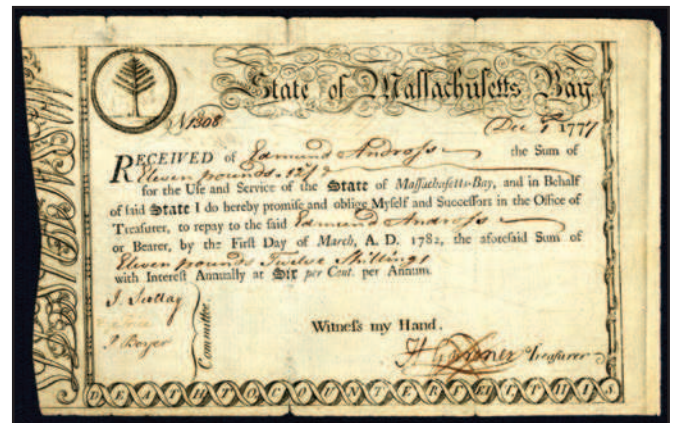 State of Massachusetts Bay
N 1308
Dec 1777
RECEIVED of Edmund Andross the Sum of
Eleven pounds 12/
for the Use and Service of the State of Maſſachuſetts-Bay, and in Behalf
of ſaid State I do hereby promiſe and oblige Myſelf and Succeſſors in the Office of
Treaſurer, to repay to the ſaid Edmund Andross
or Bearer, by the Firſt Day of March, A. D. 1782, the aforeſaid Sum of
Eleven pounds Twelve Shillings
with Intereſt Annually at Six per Cent. per Annum.
J. Scollay
J Boyer
Committee.
Witneſs my Hand.
H Gardner Treaſurer
DEATH TO COUNTERFEIT THIS